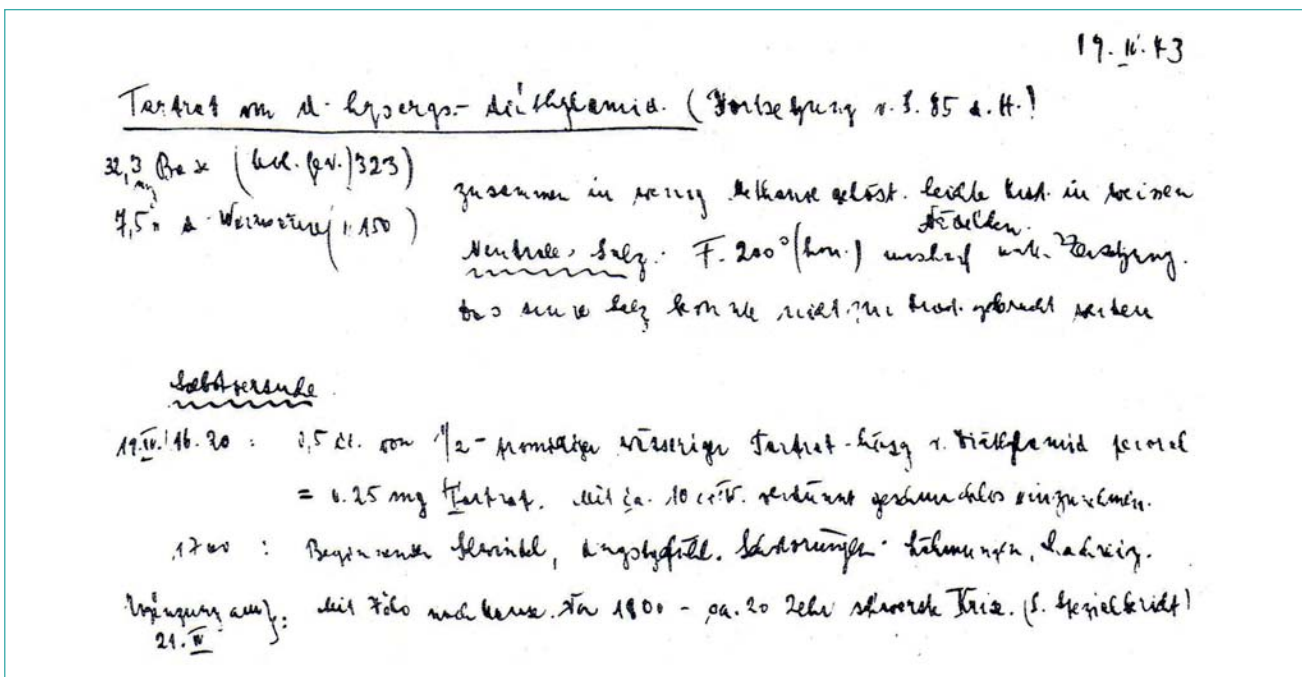 19. IV. 43
Tartrat von d-Lysergs.-diäthylamid. (Fortsetzung v. S. 85 d. H.!
32,3 mg Base (Mol. Gew. 323)
7,5 " d-Weinsäure ( " 150 )
zusammen in wenig Methanol gelöst. leichte Krist. in weissen
Nädelchen.
Neutrales Salz. F. 200° (korr.) unscharf unt. Zersetzung.
Das saure Salz konnte nicht zur Krist. gebracht werden
Selbstversuche
19.IV./16.20 : 0,5 cc. von 1/2-promilliger wässeriger Tartrat-Lösg v. Diäthylamid peroral
= 0.25 mg Tartrat. Mit ca. 10 cc W. verdünnt geschmacklos einzunehmen.
1700 : Beginnender Schwindel, Angstgefühl. Sehstörungen. Lähmungen, Lachreiz.
Ergänzung am 21.IV : Mit Velo nach Hause. Von 1800 - ca. 20 Uhr schwerste Krise. (S. Spezialbericht)